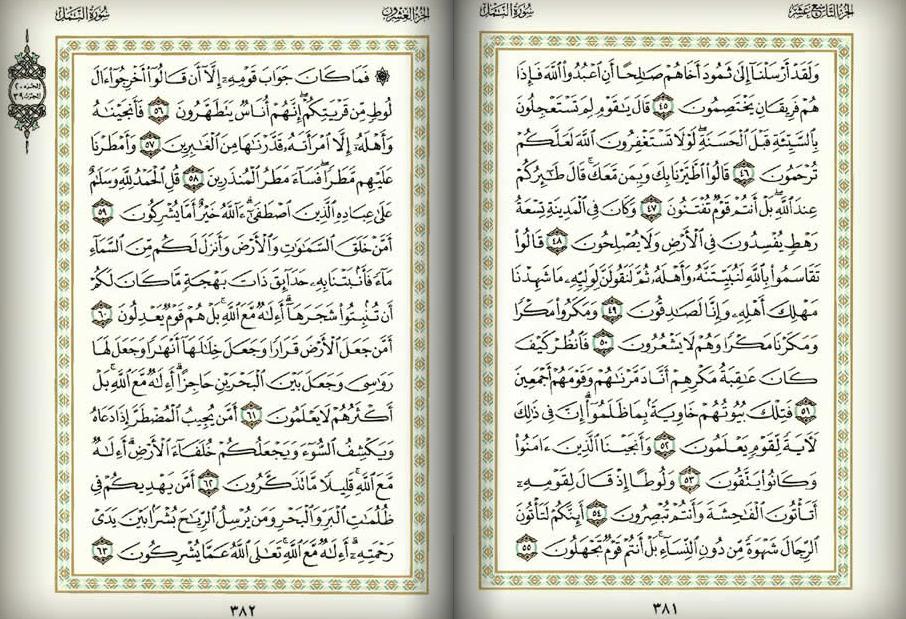 الجزء التاسع عشر
سورة النمل
ولقد أرسلنا إلى ثمود أخاهم صالحا أن اعبدوا الله فإذا
هم فريقان يختصمون ٤٥ قال يا قوم لم تستعجلون
بالسيئة قبل الحسنة لولا تستغفرون الله لعلكم
ترحمون ٤٦ قالوا اطيرنا بك وبمن معك قال طائركم
عند الله بل أنتم قوم تفتنون ٤٧ وكان في المدينة تسعة
رهط يفسدون في الأرض ولا يصلحون ٤٨ قالوا
تقاسموا بالله لنبيتنه وأهله ثم لنقولن لوليه ما شهدنا
مهلك أهله وإنا لصادقون ٤٩ ومكروا مكرا
ومكرنا مكرا وهم لا يشعرون ٥٠ فانظر كيف
كان عاقبة مكرهم أنا دمرناهم وقومهم أجمعين
٥١ فتلك بيوتهم خاوية بما ظلموا إن في ذلك
لآية لقوم يعلمون ٥٢ وأنجينا الذين ءامنوا
وكانوا يتقون ٥٣ ولوطا إذ قال لقومه
أتأتون الفاحشة وأنتم تبصرون ٥٤ أئنكم لتأتون
الرجال شهوة من دون النساء بل أنتم قوم تجهلون ٥٥
٣٨١
الجزء العشرون
سورة النمل
الجزء ٢٠
الحزب ٣٩
فما كان جواب قومه إلا أن قالوا أخرجوا ءال
لوط من قريتكم إنهم أناس يتطهرون ٥٦ فأنجيناه
وأهله إلا امرأته قدرناها من الغابرين ٥٧ وأمطرنا
عليهم مطرا فساء مطر المنذرين ٥٨ قل الحمد لله وسلام
على عباده الذين اصطفى ءآلله خير أما يشركون ٥٩
أمن خلق السماوات والأرض وأنزل لكم من السماء
ماء فأنبتنا به حدائق ذات بهجة ما كان لكم
أن تنبتوا شجرها أءلاه مع الله بل هم قوم يعدلون ٦٠
أمن جعل الأرض قرارا وجعل خلالها أنهارا وجعل لها
رواسي وجعل بين البحرين حاجزا أءلاه مع الله بل
أكثرهم لا يعلمون ٦١ أمن يجيب المضطر إذا دعاه
ويكشف السوء ويجعلكم خلفاء الأرض أءلاه
مع الله قليلا ما تذكرون ٦٢ أمن يهديكم في
ظلمات البر والبحر ومن يرسل الرياح بشرا بين يدي
رحمته أءلاه مع الله تعالى الله عما يشركون ٦٣
٣٨٢